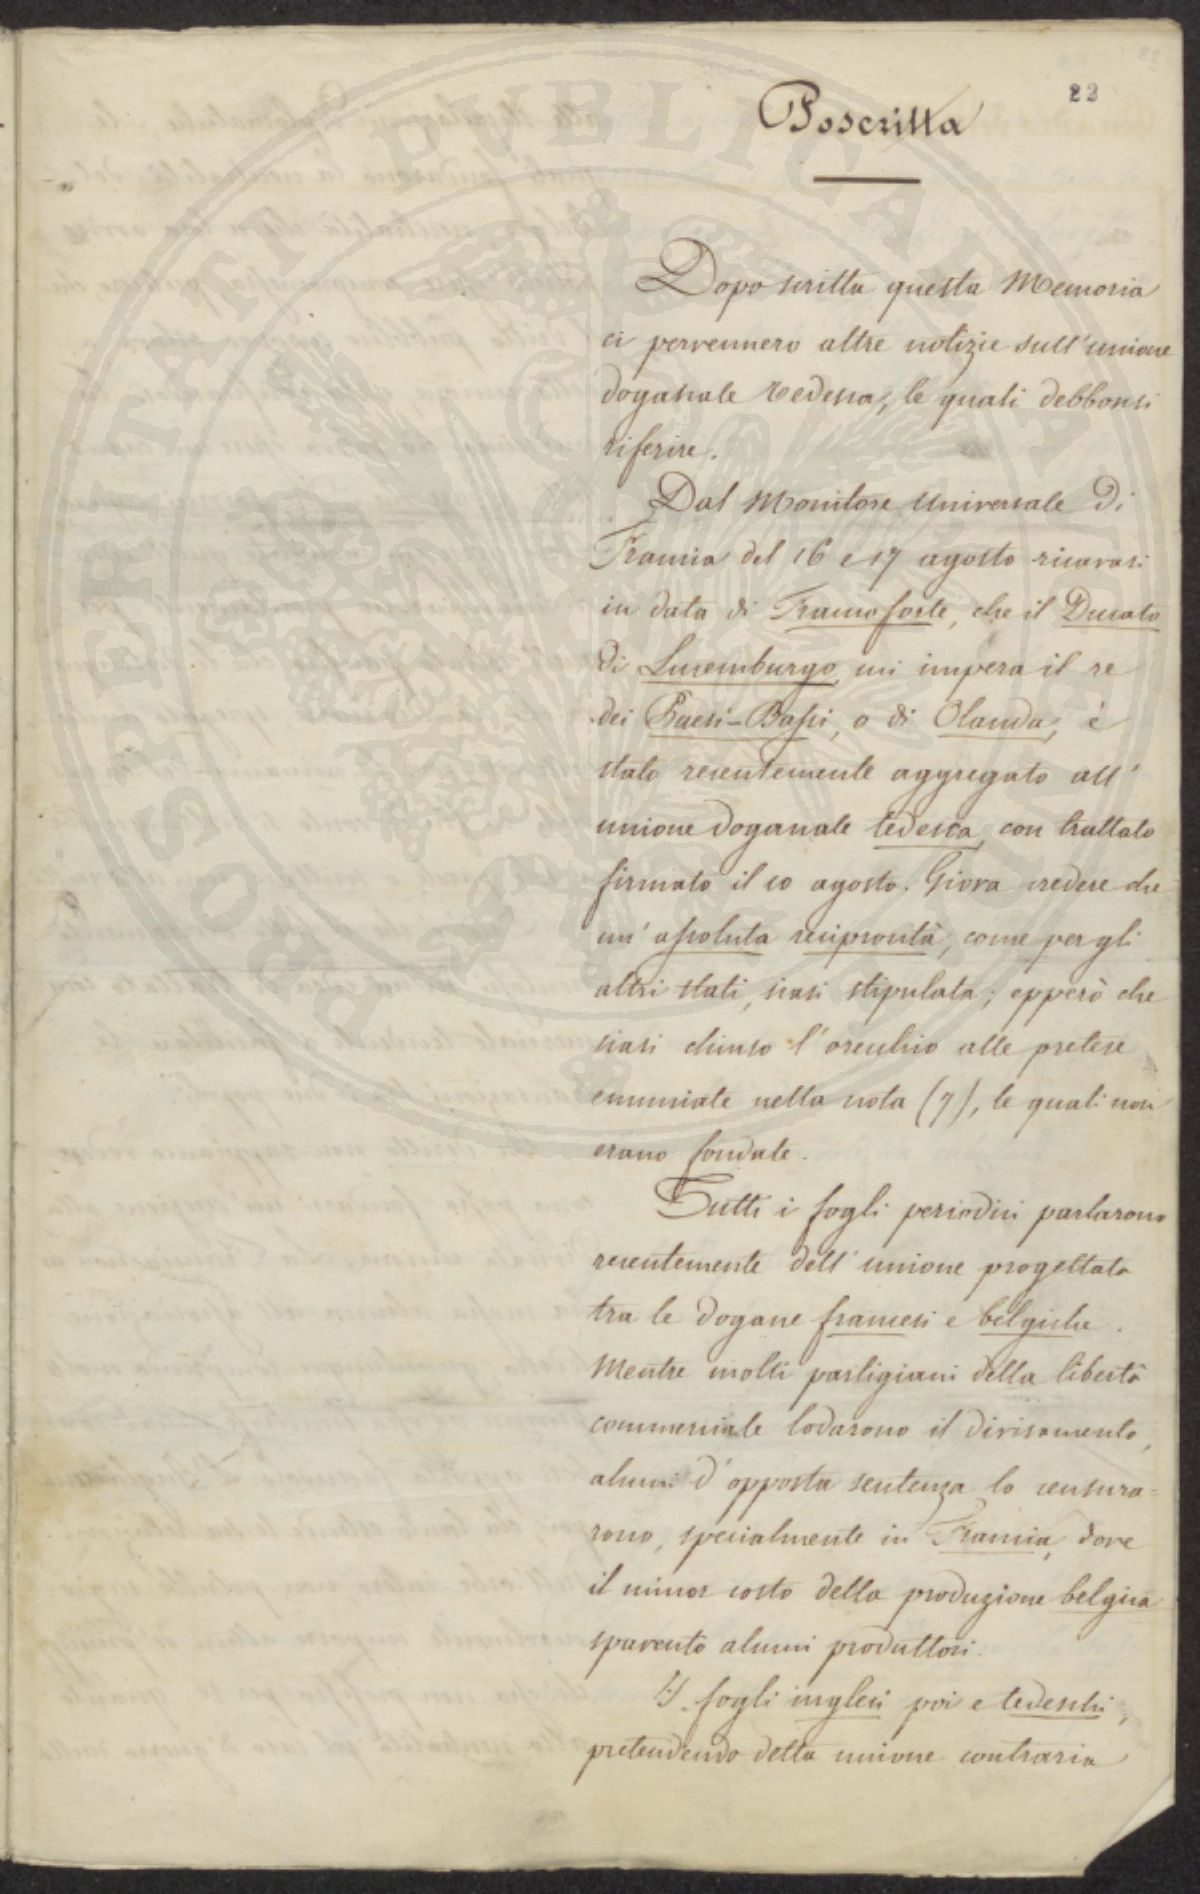 22
Poscritta
Dopo scritta questa Memoria
ci pervennero altre notizie sull'unione
doganale tedesca, le quali debbonsi
riferire.
Dal Monitore Universale di
Francia del 16 e 17 agosto ricavasi
in data di Francoforte, che il Ducato
di Lucemburgo cui impera il re
dei Paesi-Bassi, o di Olanda, è
stato recentemente aggregato all'
unione doganale tedesca, con trattato
firmato il 10 agosto. Giova credere che
un'assoluta reciprocità, come per gli
altri stati, siasi stipulata; epperò che
siasi chiuso l'orecchio alle pretese
enunciate nella nota (7), le quali non
erano fondate.
Tutti i fogli periodici parlarono
recentemente dell'unione progettata
tra le dogane francesi e belgiche.
Mentre molti partigiani della libertà
commerciale lodarono il divisamento,
alcuni d'opposta sentenza lo censura=
rono, specialmente in Francia, dove
il minor costo della produzione belgica
spaventò alcuni produttori.
I fogli inglesi poi e tedeschi,
pretendendo detta unione contraria
PROSPERITATI PVBLICAE